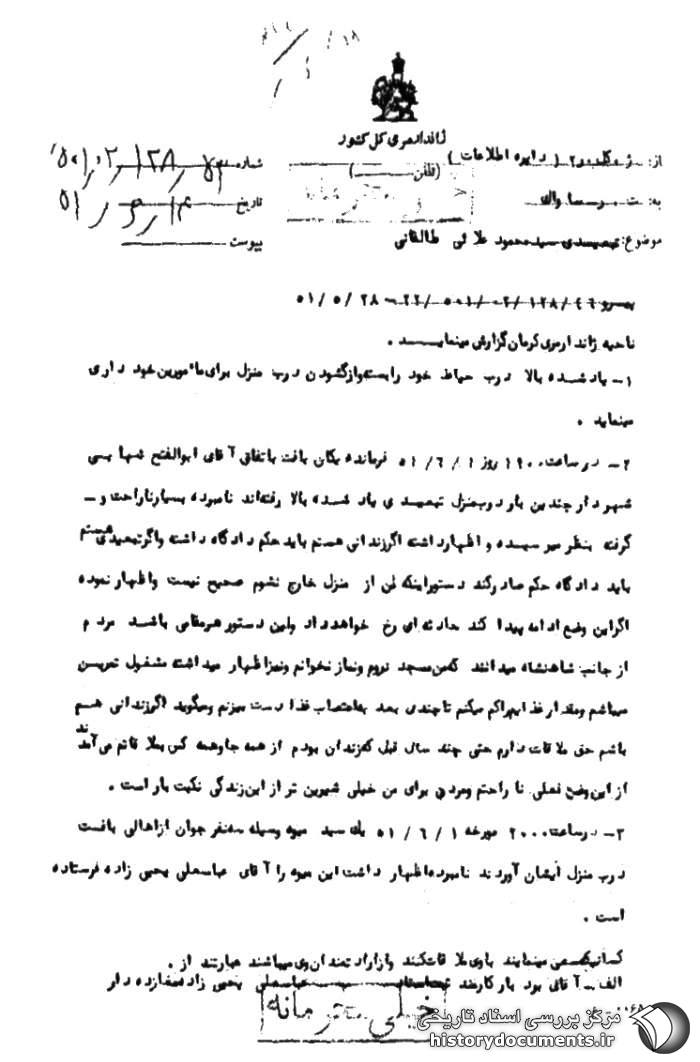 ژاندارمری کل کشور
از: ژ. رکن ۲ ( دایره اطلاعات )
(تلفن)
شماره
به:
تاریخ ۵۱
موضوع: تبعیدی سیدمحمود علائی طالقانی
پیوست
پیرو ۴۶/ ۱۲۸/ ۰۲/ ۵۰۱/ ۲۲ – ۲۸/ ۵/ ۵۱
ناحیه ژاندارمری کرمان گزارش مینماید .
۱– یاد شده بالا درب حیاط خود رابسته‌وازگشودن درب منزل برای مأمورین خود داری
مینماید .
۲– در ساعت ۱۹۰۰ روز ۱/ ۶/ ۵۱ فرمانده یگان بافت باتفاق آقای ابوالفتح شهابی
شهردار چندین بار دوب‌منزل تبعیدی یاد شده بالا رفته‌اند نامبرده بسیارناراحت و –
گرفته بنظر میرسیده و اظهارداشته اگرزندانی هستم باید حکم دادگاه داشته واگرتبعیدی هستم
باید دادگاه حکم صادرکند دستوراینکه من از منزل خارج نشوم صحیح نیست واظهار نموده
اگراین وضع ادامه پیدا کند حادثه‌ای رخ خواهدداد واین دستور هرمقامی باشد مردم
از جانب شاهنشاه میدانند که‌من‌مسجد نروم ونماز نخوانم ونیزاظهار میداشته مشغول تمرین
میباشم ومقدار غذایم‌راکم میکنم تاچندی بعد به‌اعتصاب غذا دست میزنم ومیگوید اگرزندانی هسم
باشم حق ملاقات دارم حتی چند سال قبل که‌زندان بودم از همه جاوهمه کس بملاقاتم می‌آمدند
از این‌وضع فعلی ناراحتم ومردن برای من خیلی شیرین تر از این‌زندگی نکبت بار است .
۳– درساعت ۲۰۰۰ مورخه ۱/ ۶/ ۵۱ یك سبد میوه وسیله سه‌نفر جوان ازاهالی بافت
درب منزل ایشان آوردند نامبرده‌اظهار داشت این میوه را آقای عباسعلی یحیی زاده فرستاده
است .
کسانیکه‌سعی مینمایند باوی ملاقات‌کنند وازارادتمندان‌وی میباشند عبارتند از .
الف – آقای بود بار کارمند عباسعلی یحیی زاده‌مغازه دار
خیلی محرمانه
مرکز بررسی اسناد تاریخی
historydocuments.ir